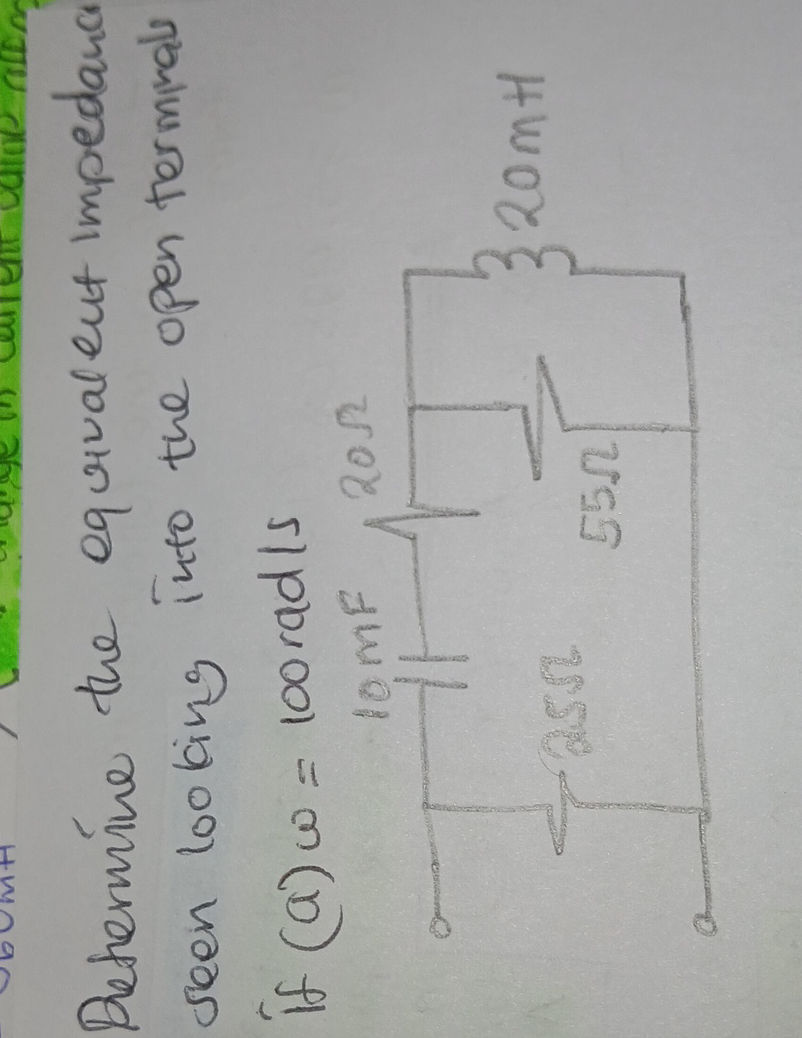 Determine the equivalent impedance
seen looking into the open terminals
if (a) ω = 100 rad/s
10mF 20Ω
25Ω
55Ω
20mH